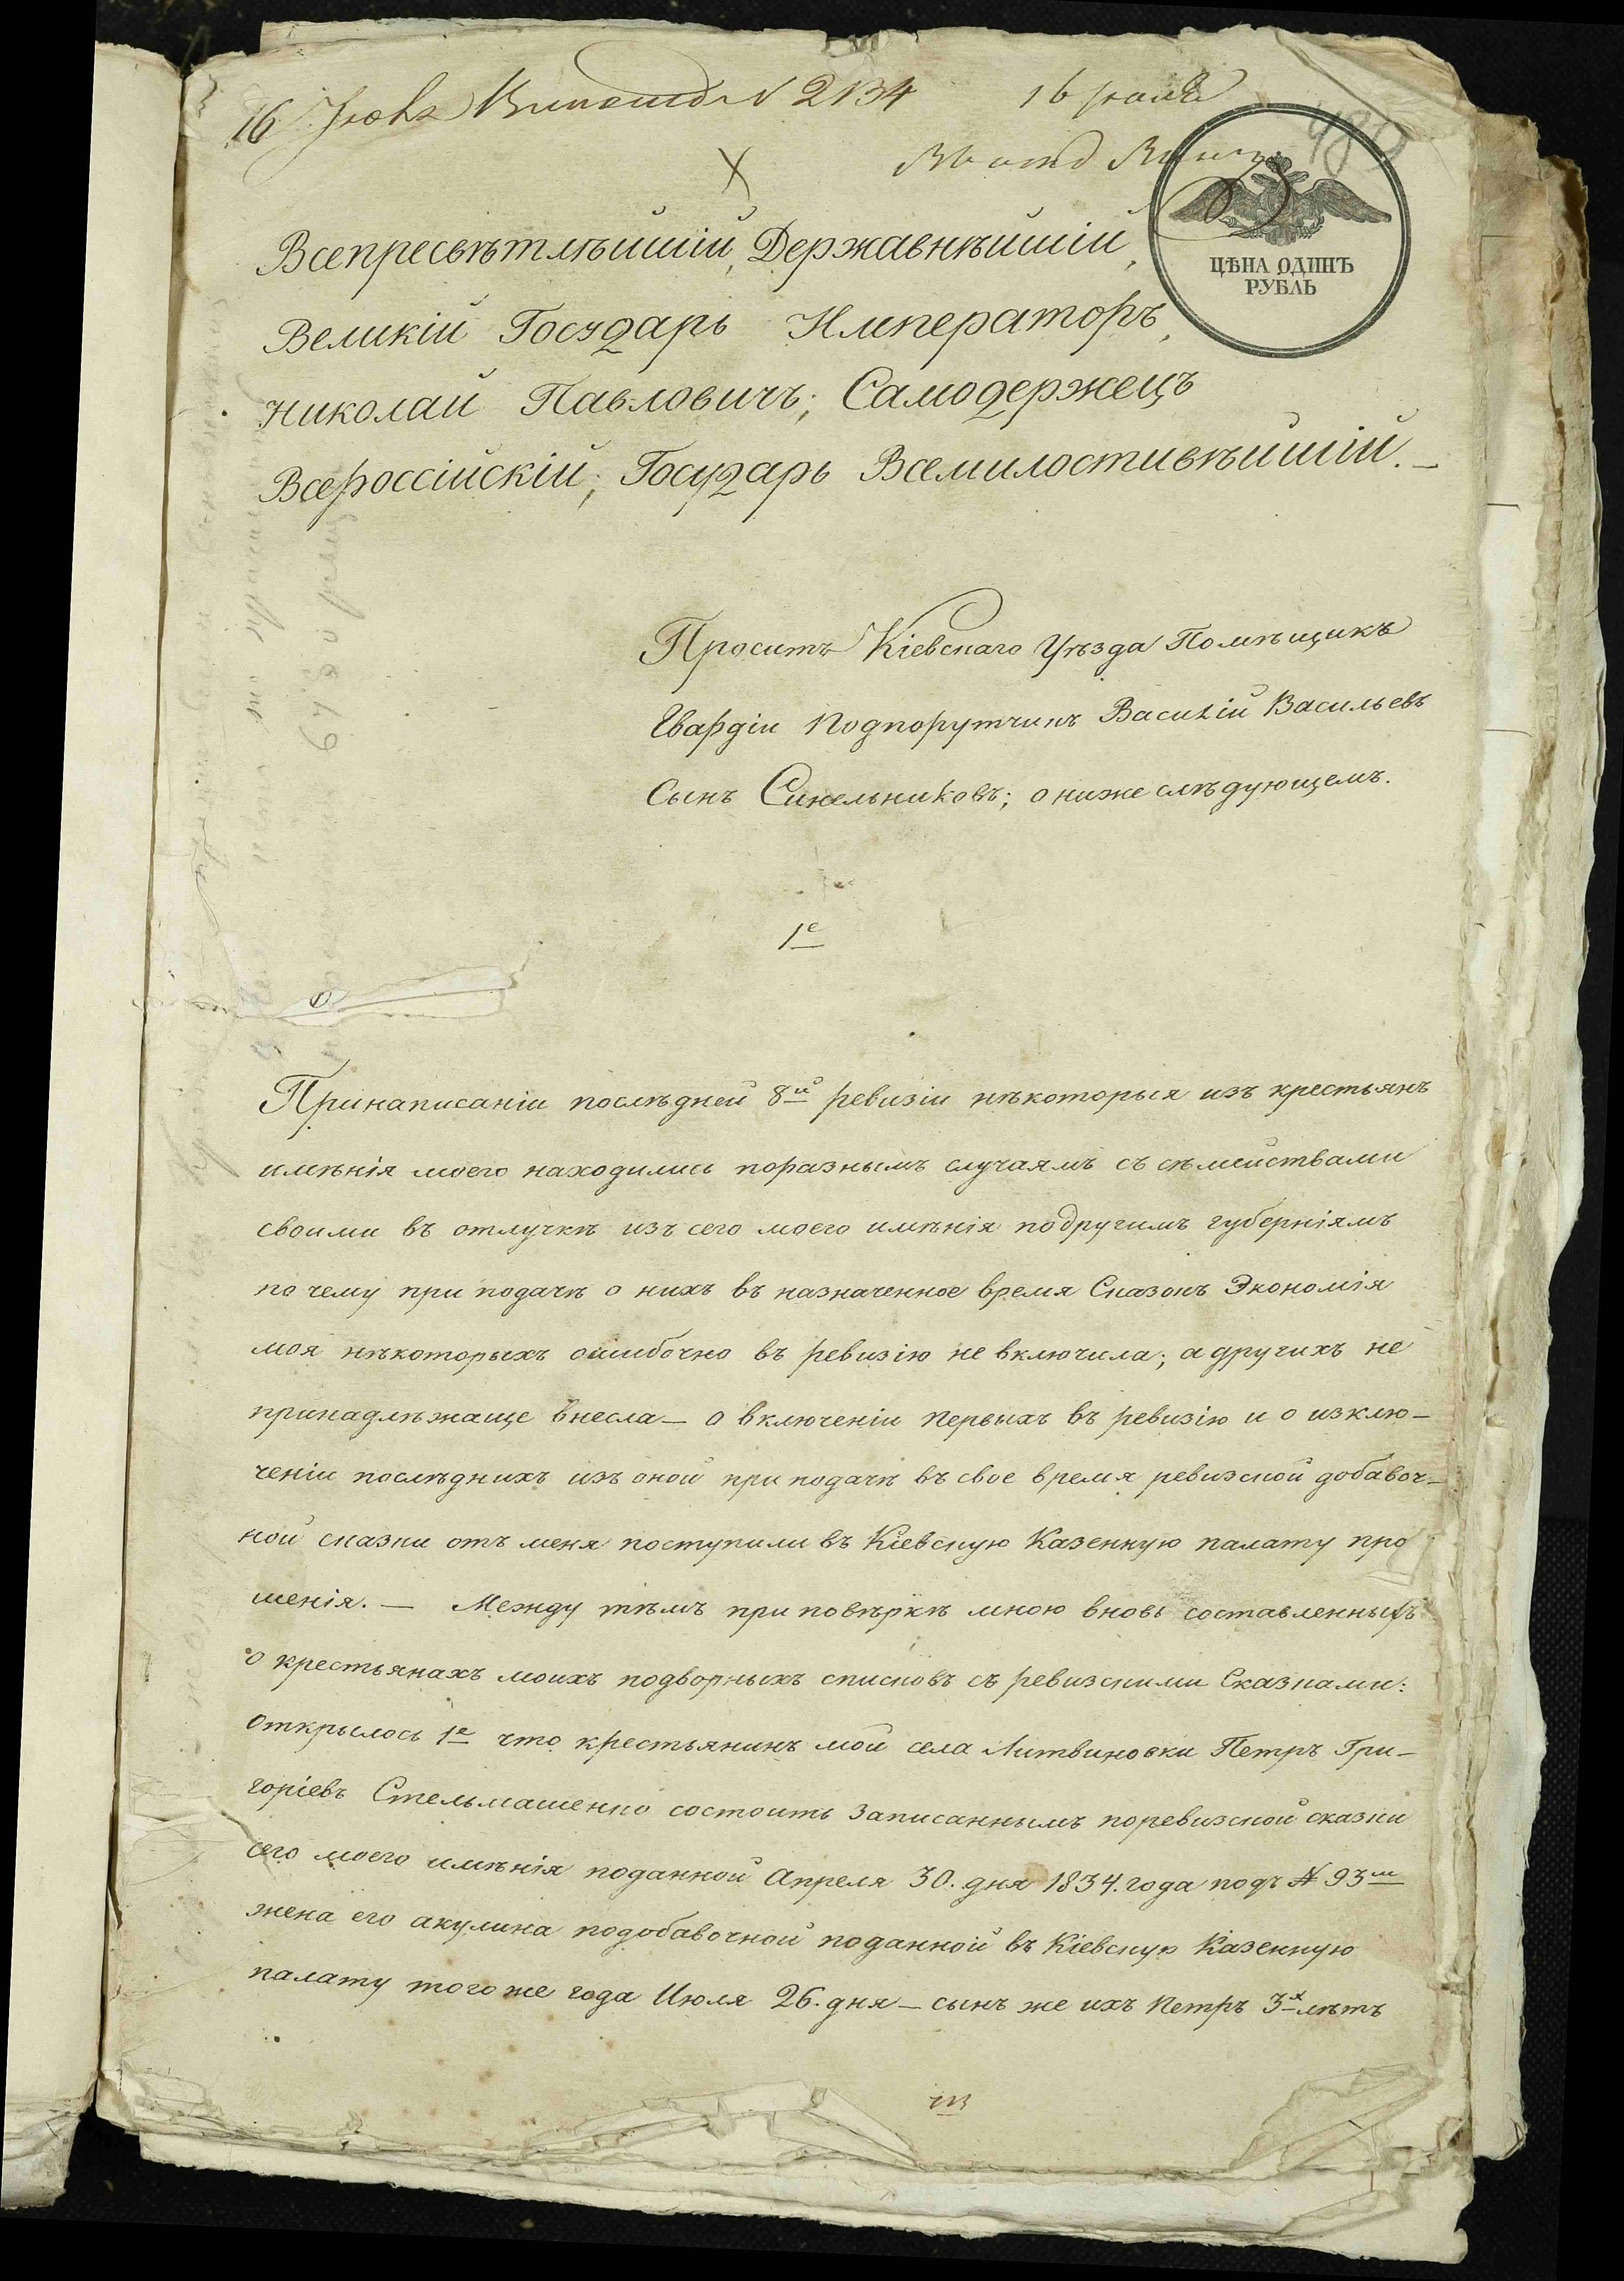 16 Июня № 2134 16 июня
480
ЦѢНА ОДИНЪ
РУБЛЬ
Всепресвѣтлѣйшій, Державнѣйшій,
Великій Государь Императоръ,
Николай Павловичъ; Самодержецъ
Всероссійскій; Государь Всемилостивѣйшій.—
Проситъ Кіевскаго Уѣзда Помѣщикъ
Гвардіи Подпорутчикъ Василій Васильевъ
Сынъ Синельниковъ; о нижеслѣдующемъ.
1е
При написаніи послѣдней 8й ревизіи нѣкоторыя изъ крестьянъ
имѣнія моего находились по разнымъ случаямъ съ сѣмействами
своими въ отлучкѣ изъ сего моего имѣнія по другимъ губерніямъ
по чему при подачѣ о нихъ въ назначенное время Сказокъ Экономія
моя нѣкоторыхъ ошибочно въ ревизію не включила; а другихъ не
принадлѣжаще внесла — о включеніи первыхъ въ ревизію и о изклю-
ченіи послѣднихъ изъ оной при подачѣ въ свое время ревизской добавоч-
ной сказки отъ меня поступили въ Кіевскую Казенную палату про
шенія. — Между тѣмъ при повѣркѣ мною вновь составленныхъ
о крестьянахъ моихъ подворныхъ списковъ съ ревизскими Сказками:
открылось 1е что крестьянинъ мой села Литвиновки Петръ Гри-
горіевъ Стельмашенко состоитъ записаннымъ по ревизской сказки
сего моего имѣнія поданной Апреля 30. дня 1834. года подъ № 93м
жена его акулина по добавочной поданной въ Кіевскую Казенную
палату того же года Июля 26. дня — сынъ же ихъ Петръ 3х лѣтъ